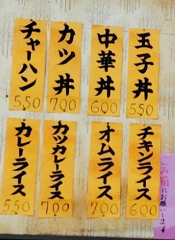 玉子丼
550
中華丼
600
カツ丼
700
チャーハン
550
チキンライス
550
オムライス
700
カツカレーライス
700
カレーライス
550
お願いします